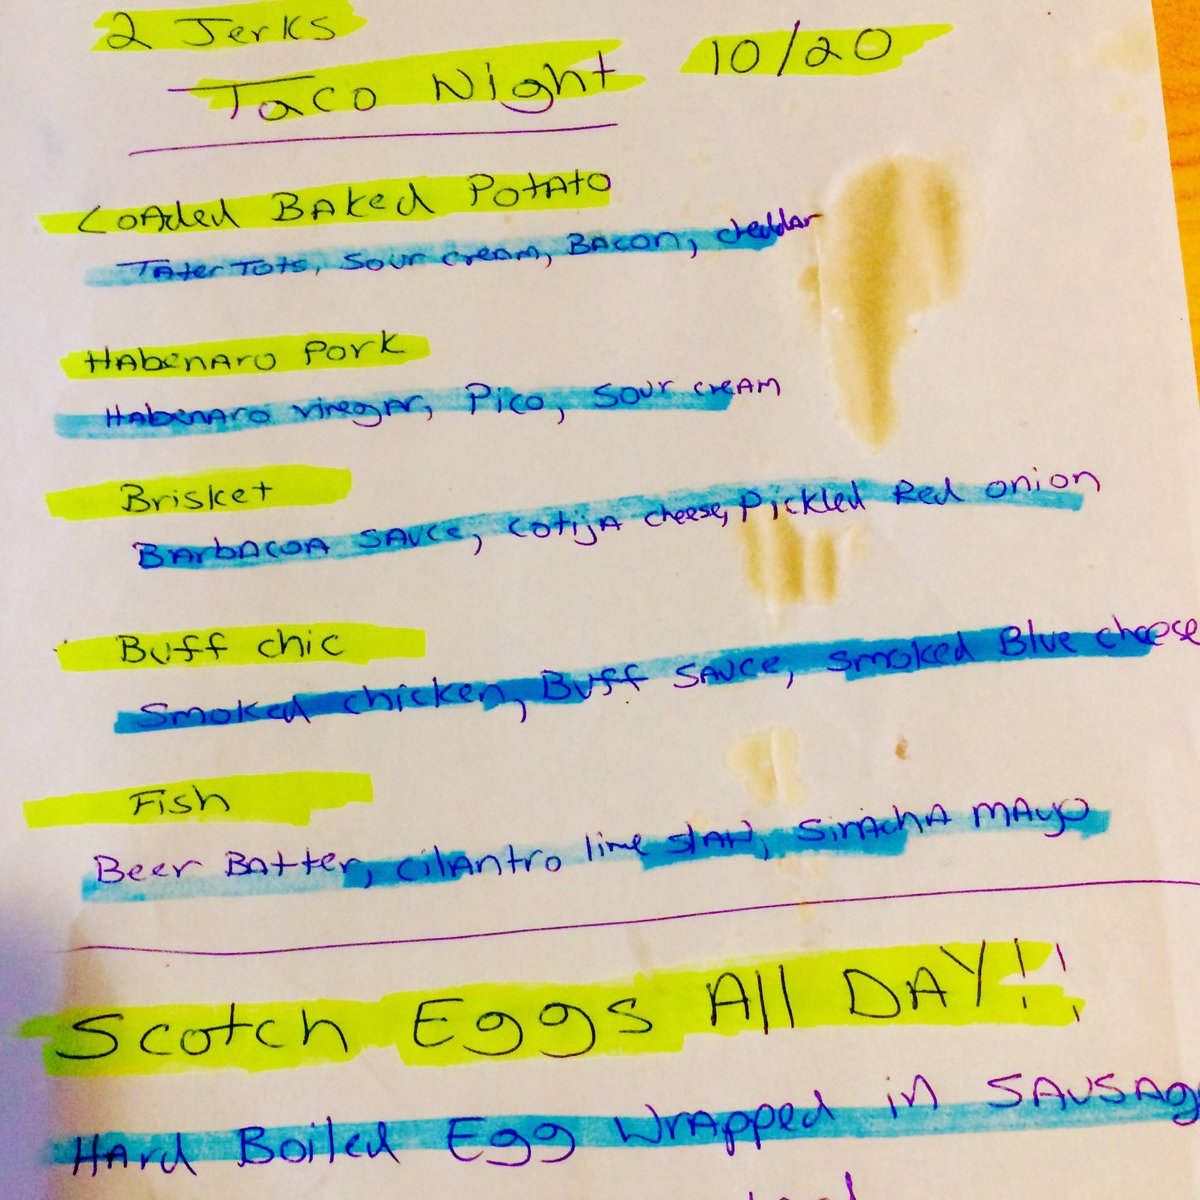 2 Jerks
Taco Night 10/20
Loaded Baked Potato
Tater Tots, Sour cream, Bacon, cheddar
Habenaro Pork
Habenaro vinegar, Pico, Sour cream
Brisket
Barbacoa Sauce, Cotija cheese, Pickled Red onion
Buff chic
Smoked chicken, Buff Sauce, Smoked Blue cheese
Fish
Beer Batter, cilantro lime slaw, Siracha mayo
Scotch Eggs All DAY!!
Hard Boiled Egg Wrapped in SAUSAG